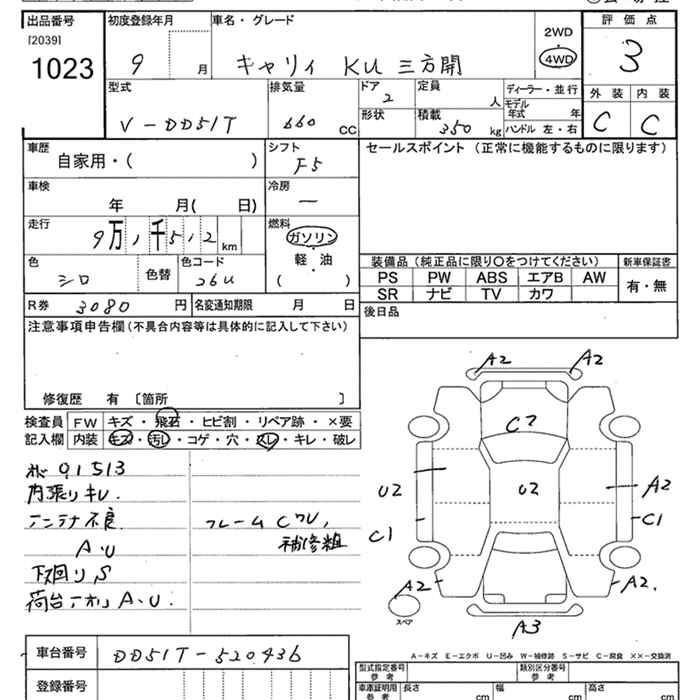 出品番号
[2039]
1023
初度登録年月
9 月
車名・グレード
キャリィ KU 三方開
2WD
4WD
評価点
3
外装 内装
C C
型式
V-DD51T
排気量
660 CC
ドア
2
形状
定員
人
積載
350 kg
ディーラー・並行
モデル年式 年
ハンドル 左・右
車歴
自家用・( )
シフト
F5
車検
年 月( 日)
冷房
ー
走行
9万1千5 2 km
燃料
ガソリン
軽・油
( )
色
シロ
色替
色コード
26U
R券 3080 円
名変通知期限 月 日
セールスポイント (正常に機能するものに限ります)
装備品 (純正品に限り〇をつけてください)
PS PW ABS エアB AW
SR ナビ TV カワ
新車保証書
有・無
後日品
注意事項申告欄(不具合内容等は具体的に記入して下さい)
修復歴 有 〔箇所 〕
検査員記入欄
FW キズ・飛石・ヒビ割・リペア跡・×要
内装 キズ・汚レ・コゲ・穴・スレ・キレ・破レ
91513
内張りキレ.
アンテナ不良
A・U
下回りS
荷台アオリA.U.
フレームCワレ,
補修粗
A2 A2
C2
U2 U2 A2
C1 C1
A2 A2.
A3
スペア
A-キズ E-エクボ U-凹み W-補修跡 S-サビ C-腐食 XX-交換済
車台番号 DD51T-520436
登録番号
型式指定番号
参考
類別区分番号
参考
車庫証明用
参考
長さ cm
幅 cm
高さ cm